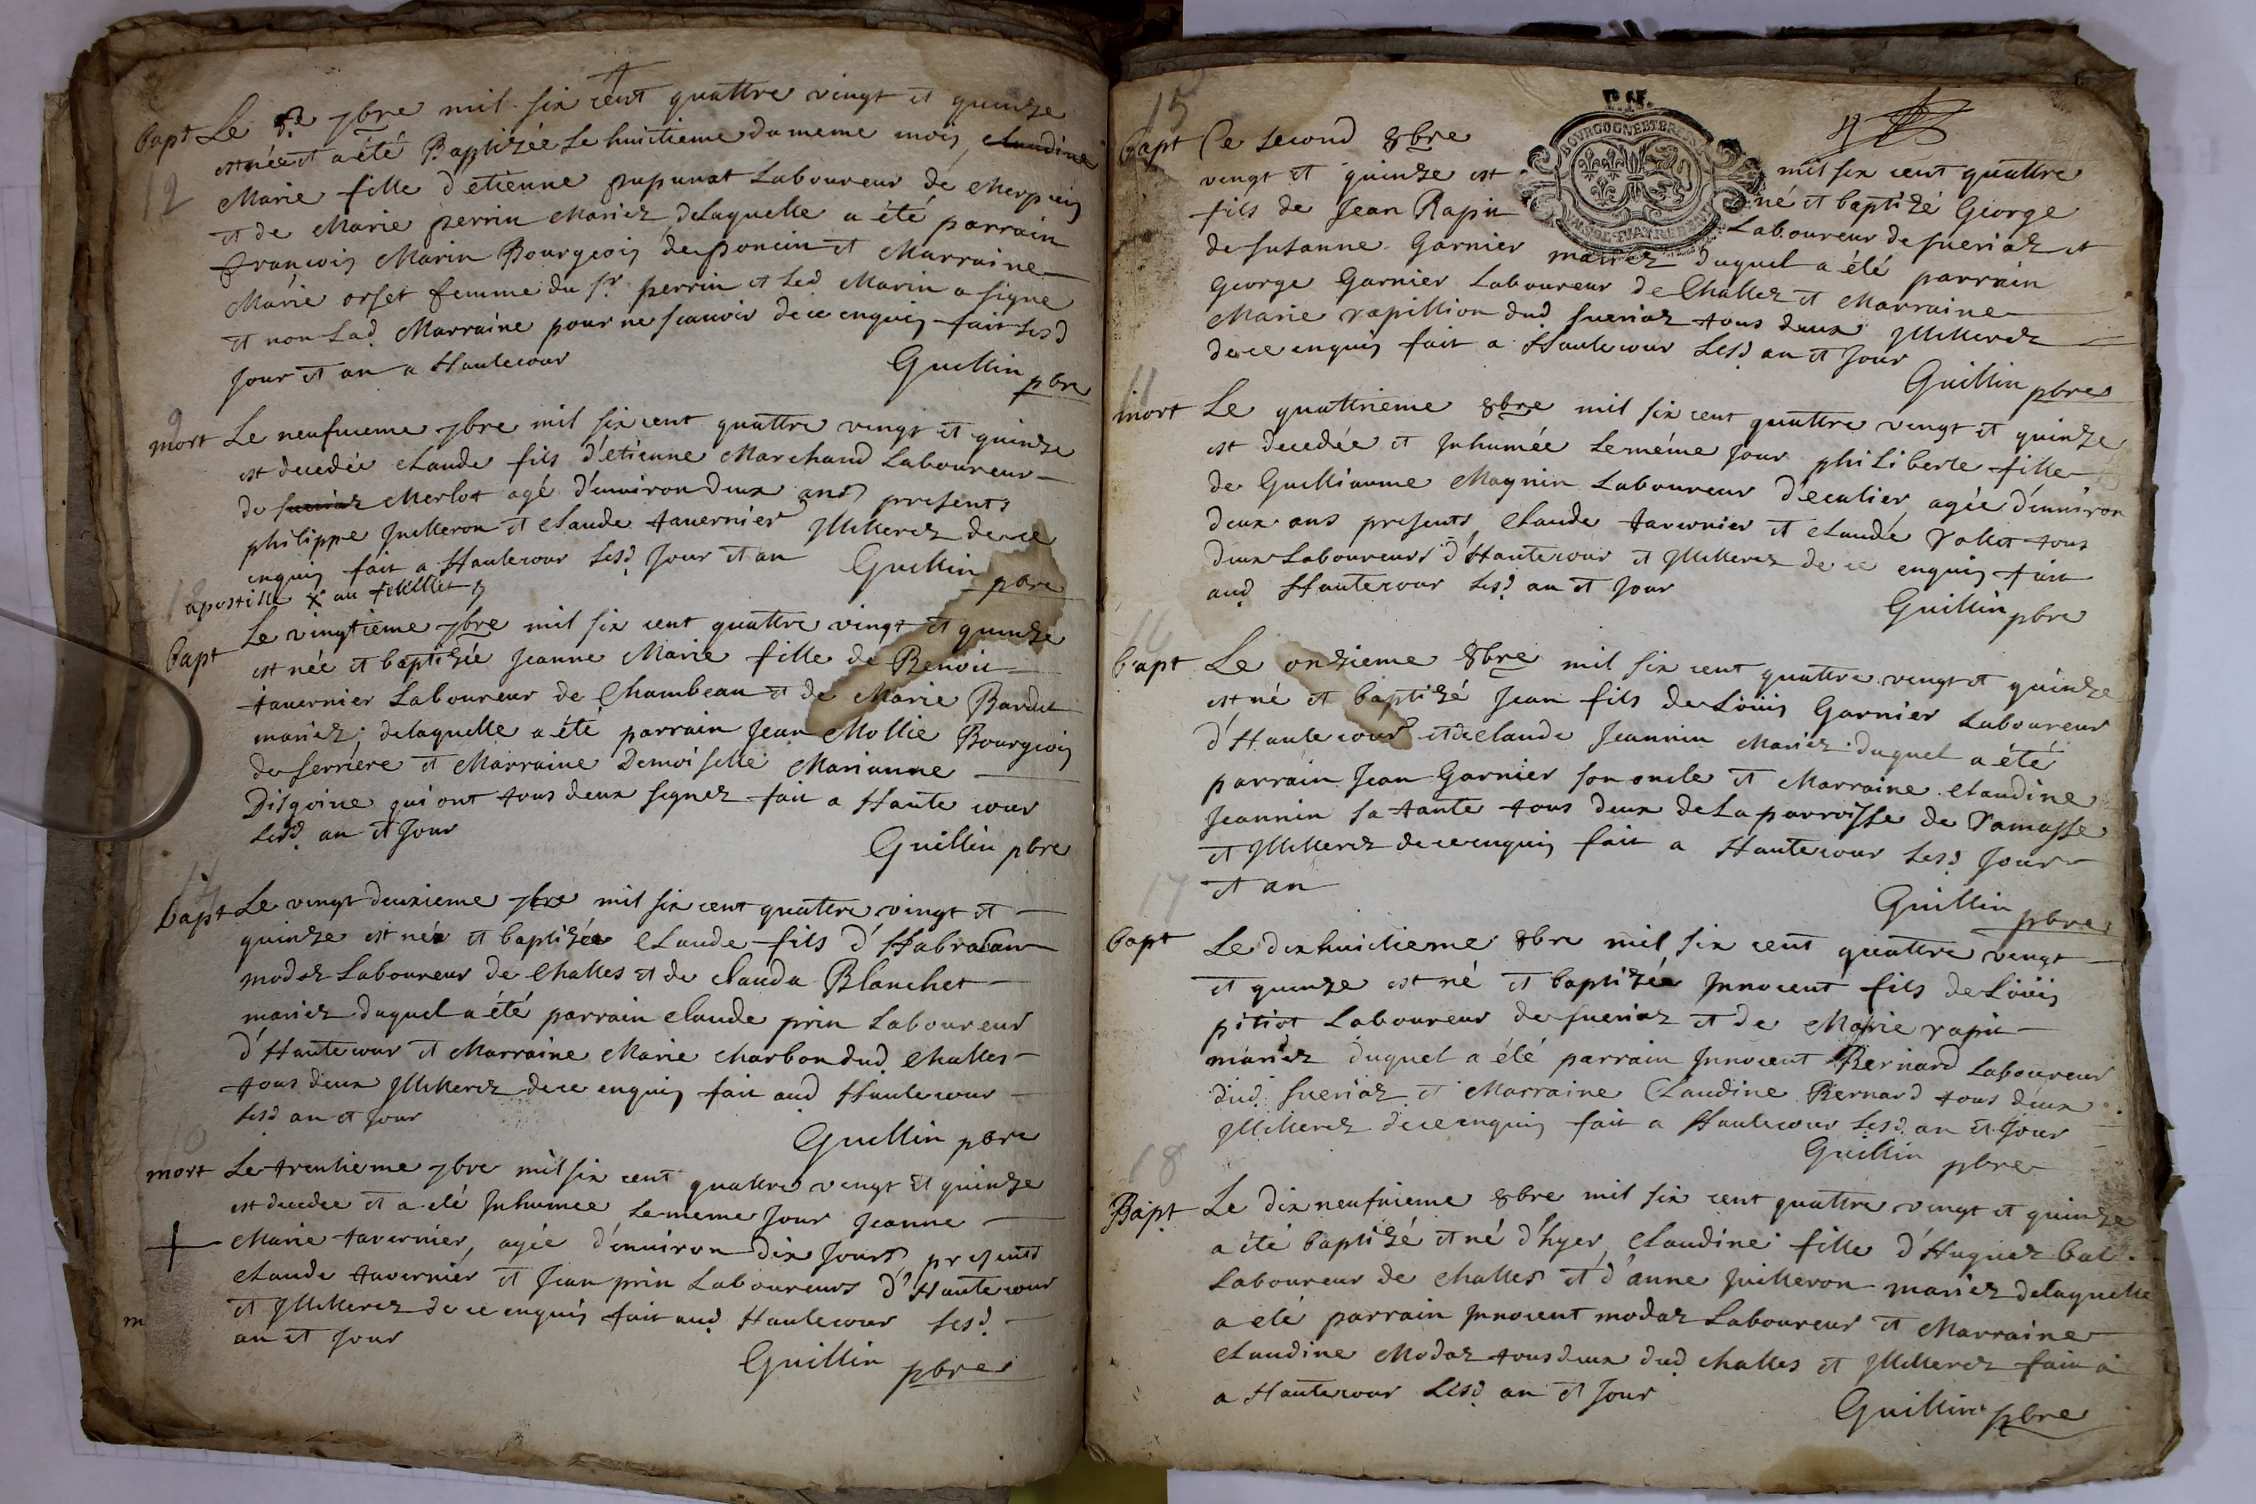 12
bapt Le 8e 7bre mil six cent quattre vingt et quinze
est née et a été Baptizée Le huitieme du meme mois claudine
Marie fille d'etienne pupunat Laboureur de Merpuis
et de Marie perrin Mariez delaquelle a été parrain
françois Marin Bourgeois de poncin et Marraine
Marie orset femme du sr perrin et Led Marin a signé
et non Lad Marraine pour ne scauoir de ce enquis fait Lesd
Jour et an a Hautecour
Guillin pbre
9
mort Le neufuieme 7bre mil six cent quattre vingt et quinze
est decedée claude fils d'étienne Marchand Laboureur
de sueriaz Merlot agé d'enuiron deux ans presents
philippe Juilleron et claude tauernier Jllitterez de ce
enquis fait a Hautecour Lesd Jour et an
Guillin pbre
apostille x au feuillet 5
bapt Le vingtieme 7bre mil six cent quattre vingt et quinze
est née et baptizée Jeanne Marie fille de Benoit
tauernier Laboureur de Chambeau et de Marie Bardet
mariez, delaquelle a été parrain Jean Mollie Bourgeois
de serriere et Marraine Demoiselle Marianne
Disgoine qui ont tous deux signez fait a Haute cour
Lesd an et Jour
Guillin pbre
14
bapt Le vingt deuxieme 7bre mil six cent quattre vingt et
quinze est née et baptizée claude fils d'Habraam
modaz Laboureur de Challes et de clauda Blanchet
mariez duquel a été parrain claude prin Laboureur
d'Hautecour et Marraine Marie charbon dud challes
tous deux Jllitterez de ce enquis fait aud Hautecour
Lesd an et Jour
Guillin pbre
10
mort Le trentieme 7bre mil six cent quattre vingt et quinze
est decedee et a eté Inhumee Le meme Jour Jeanne
Marie tavernier, agée d'enuiron dix Jours presents
claude tavernier et Jean prin Laboureurs d'Hautecour
et Jllitterez de ce enquis fait aud Hautecour Lesd
an et Jour
m
Guillin pbre
15
P. IX.
BOURGOGNE ET BRESSE
bapt Ce second 8bre mil six cent quattre
vingt et quinze est né et baptizé George
fils de Jean Rapin Laboureur de sueriaz et
de susanne Garnier mariez duquel a été parrain
George Garnier Laboureur de Challez et Marraine
Marie rapillion dud sueriaz tous deux Jllitterez
de ce enquis fait a Hautecour Lesd an et Jour
Guillin pbre
11
mort Le quattrieme 8bre mil six cent quattre vingt et quinze
est decedée et Inhumée Le méme Jour philiberte fille
de Guilliaume Magnin Laboureur d'ecalier, agée d'enuiron
deux ans presents, claude tavernier et claude rollet tous
deux Laboureurs d'Hautecour et Jllitterez de ce enquis fait
aud Hautecour Lesd an et Jour
Guillin pbre
16
bapt Le onzieme 8bre mil six cent quattre vingt et quinze
est né et baptizé Jean fils de Loüis Garnier Laboureur
d'Hautecour et de claude Jeannin Mariez duquel a été
parrain Jean Garnier son oncle et Marraine claudine
Jeannin sa tante tous deux de La parroisse de ramasse
et Jllitterez de ce enquis fait a Hautecour Lesd Jour
et an
Guillin pbre
17
bapt Le dix huictieme 8bre mil six cent quattre vingt
et quinze est né et baptizée Innocent fils de Loüis
pitiot Laboureur de sueriaz et de Marie rapin
mariez duquel a été parrain Innocent Bernard Laboureur
dud sueriaz et Marraine Claudine Bernard tous deux
Jllitterez de ce enquis fait a Hautecour Lesd an et Jour
Guillin pbre
18
Bapt Le dix neufuieme 8bre mil six cent quattre vingt et quinze
a été baptizé et né d'hyer, claudine fille d'Huguez bal
Laboureur de challes et d'anne Juilleron mariez delaquelle
a eté parrain Innocent modaz Laboureur et Marraine
claudine Modaz tous deux dud challes et Jllitterez fait a
a Hautecour Lesd an et Jour
Guillin pbre